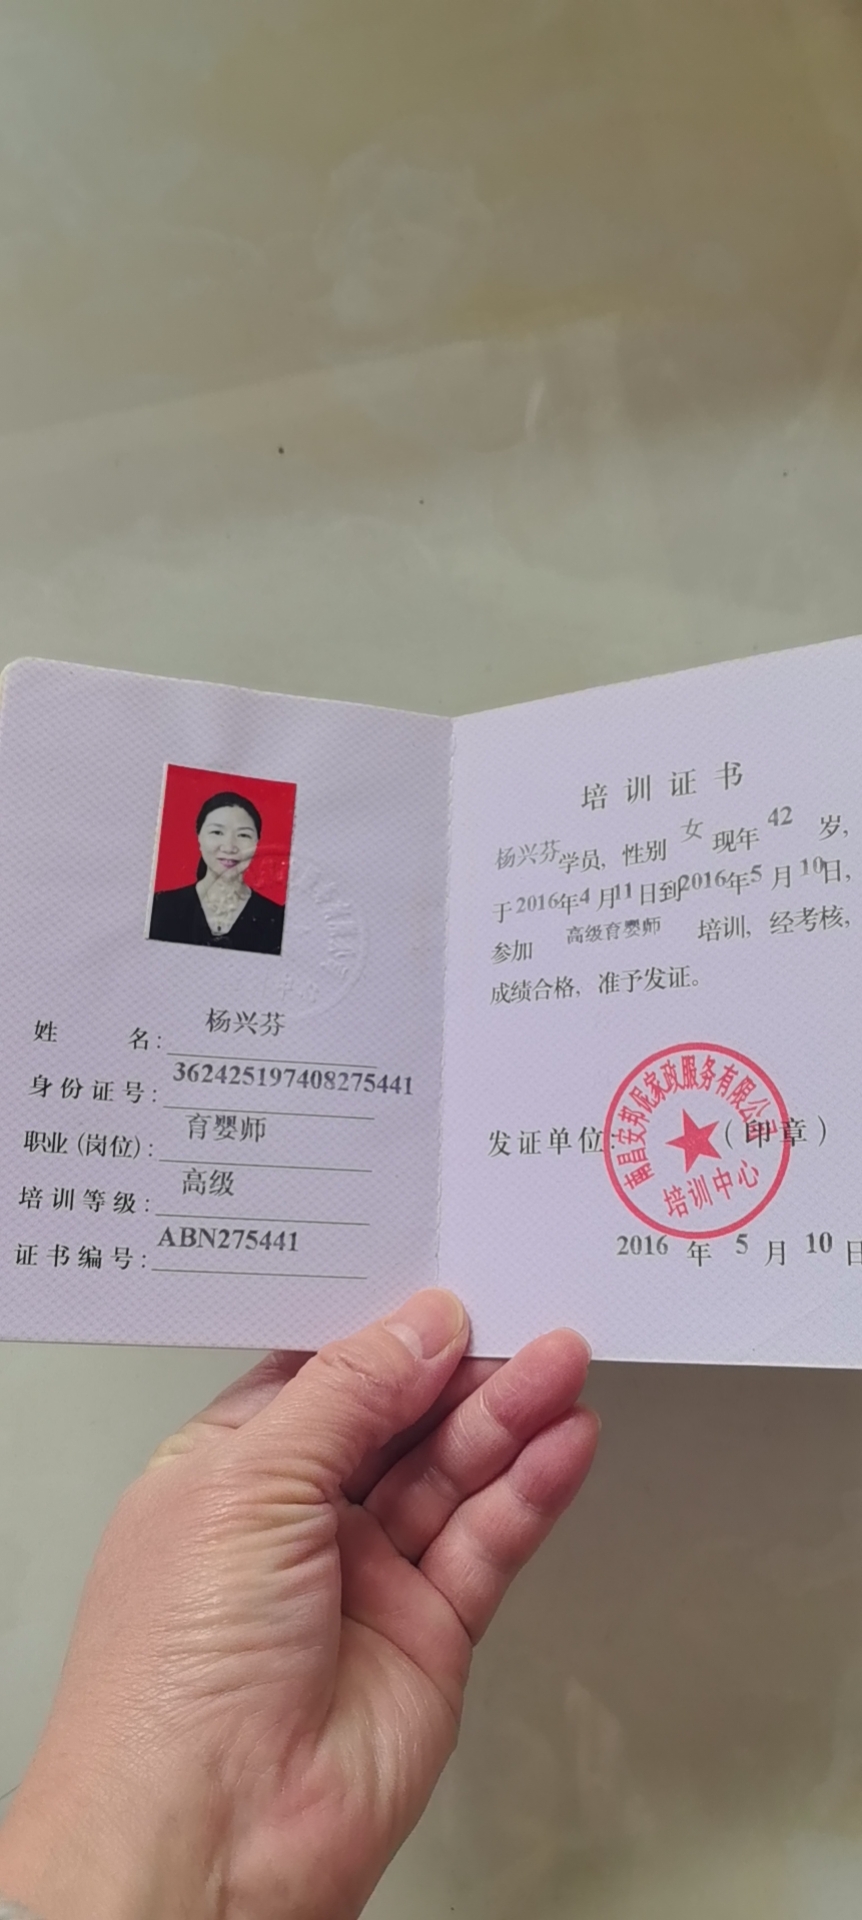 姓名：杨兴芬
身份证号：362425197408275441
职业(岗位)：育婴师
培训等级：高级
证书编号：ABN275441
培训证书
杨兴芬学员，性别 女 现年 42 岁，
于2016年4月11日到2016年5月10日，
参加 高级育婴师 培训，经考核，
成绩合格，准予发证。
发证单位：（印章）
南昌安邦昵家政服务有限公司
培训中心
2016 年 5 月 10 日